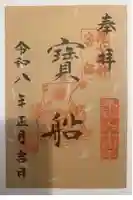 奉拝
寳船
令和八年正月吉日